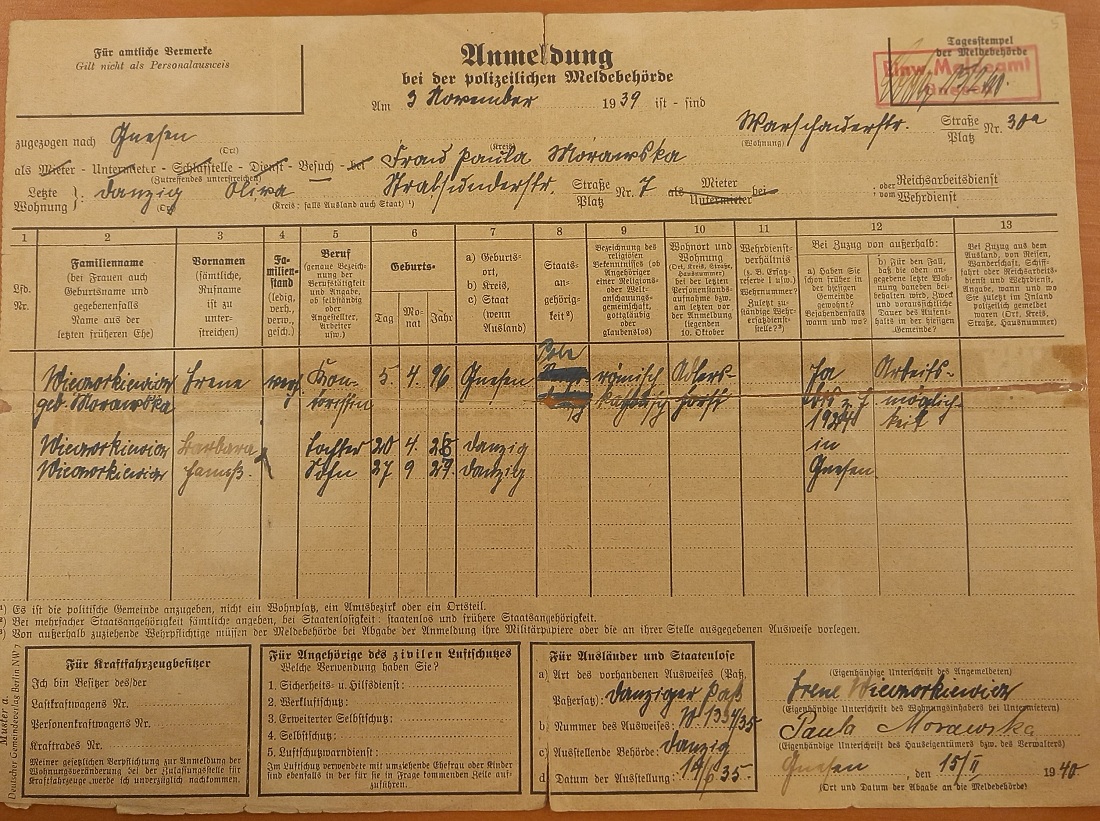 Für amtliche Vermerke
Gilt nicht als Personalausweis
Anmeldung
bei der polizeilichen Meldebehörde
Tagesstempel
der Meldebehörde
Einw. Meldeamt
Am 3 November 1939 ist - sind
zugezogen nach Gnesen
(Ort)
(Kreis)
Warschauerstr. Straße Platz Nr. 30a
(Wohnung)
als Mieter - Untermieter - Schlafstelle - Dienst - Besuch - bei Frau Paula Morawska
(Zutreffendes unterstreichen)
Letzte Wohnung }: Danzig Oliva Stralsunderstr. Straße Platz Nr. 7 als Mieter Untermieter bei
(Ort)
(Kreis; falls Ausland auch Staat) ¹)
oder vom Reichsarbeitsdienst Wehrdienst
1 2 3 4 5 6 7 8 9 10 11 12 13
Lfd. Nr.
Familienname (bei Frauen auch Geburtsname und gegebenenfalls Name aus der letzten früheren Ehe)
Vornamen (sämtliche, Rufname ist zu unterstreichen)
Familienstand (ledig, verh., verw., gesch.)
Beruf (genaue Bezeichnung der Berufstätigkeit und Angabe, ob selbständig oder Angestellter, Arbeiter usw.)
Geburts-
Tag Monat Jahr
a) Geburtsort, b) Kreis, c) Staat (wenn Ausland)
Staatsangehörigkeit ²)
Bezeichnung des religiösen Bekenntnisses (ob Angehöriger einer Religions- oder Weltanschauungsgemeinschaft, gottgläubig oder glaubenslos)
Wohnort und Wohnung (Ort, Kreis, Straße, Hausnummer) bei der letzten Personenstandsaufnahme bzw. am letzten vor der Anmeldung liegenden 10. Oktober
Wehrdienstverhältnis
Bei Zuzug von außerhalb:
a) Haben Sie schon früher in der hiesigen Gemeinde gewohnt? Bejahendenfalls wann und wo?
b) Für den Fall, daß die oben angegebene letzte Wohnung daneben beibehalten wird, Zweck und voraussichtliche Dauer des Aufenthalts in der hiesigen Gemeinde?
Bei Zuzug aus dem Ausland, von Reisen, Wanderschaft, Schiffahrt oder Reichsarbeits- und Wehrdienst, Angabe, wann und wo Sie zuletzt im Inland polizeilich gemeldet waren (Ort, Kreis, Straße, Hausnummer)
Pole
Wieczorkiewicz Irene Kon- 5. 4. 96 Gnesen römisch Adlers- Ja Arbeits-
geb. Morawska toristin horst bis z. J. möglich-
192 keit
Wieczorkiewicz Barbara Tochter 20 4. 28 Danzig in
Wieczorkiewicz Sohn 27 9 27. Danzig Gnesen.
¹) Es ist die politische Gemeinde anzugeben, nicht ein Wohnplatz, ein Amtsbezirk oder ein Ortsteil.
²) Bei mehrfacher Staatsangehörigkeit sämtliche angeben, bei Staatenlosigkeit: staatenlos und frühere Staatsangehörigkeit.
³) Von außerhalb zuziehende Wehrpflichtige müssen der Meldebehörde bei Abgabe der Anmeldung ihre Militärpapiere oder die an ihrer Stelle ausgegebenen Ausweise vorlegen.
Muster a.
Deutscher Gemeindeverlag Berlin NW 7
Für Kraftfahrzeugbesitzer
Ich bin Besitzer des/der
Lastkraftwagens Nr.
Personenkraftwagens Nr.
Kraftrades Nr.
Meiner gesetzlichen Verpflichtung zur Anmeldung der
Wohnungsveränderung bei der Zulassungsstelle für
Kraftfahrzeuge werde ich unverzüglich nachkommen.
Für Angehörige des zivilen Luftschutzes
Welche Verwendung haben Sie?
1. Sicherheits- u. Hilfsdienst:
2. Werkluftschutz:
3. Erweiterter Selbstschutz:
4. Selbstschutz:
5. Luftschutzwarndienst:
Im Luftschutz verwendete mit umziehende Ehefrau oder Kinder
sind ebenfalls in der für sie in Frage kommenden Zeile aufzuführen.
Für Ausländer und Staatenlose
a) Art des vorhandenen Ausweises (Paß,
Paßersatz): Danziger Paß
b) Nummer des Ausweises:
c) Ausstellende Behörde: Danzig
d) Datum der Ausstellung: 35.
(Eigenhändige Unterschrift des Angemeldeten)
Irene Wieczorkiewicz
(Eigenhändige Unterschrift des Wohnungsinhabers bei Untermietern)
Paula Morawska
(Eigenhändige Unterschrift des Hauseigentümers bzw. des Verwalters)
Gnesen, den 15/II 1940.
(Ort und Datum der Abgabe an die Meldebehörde)